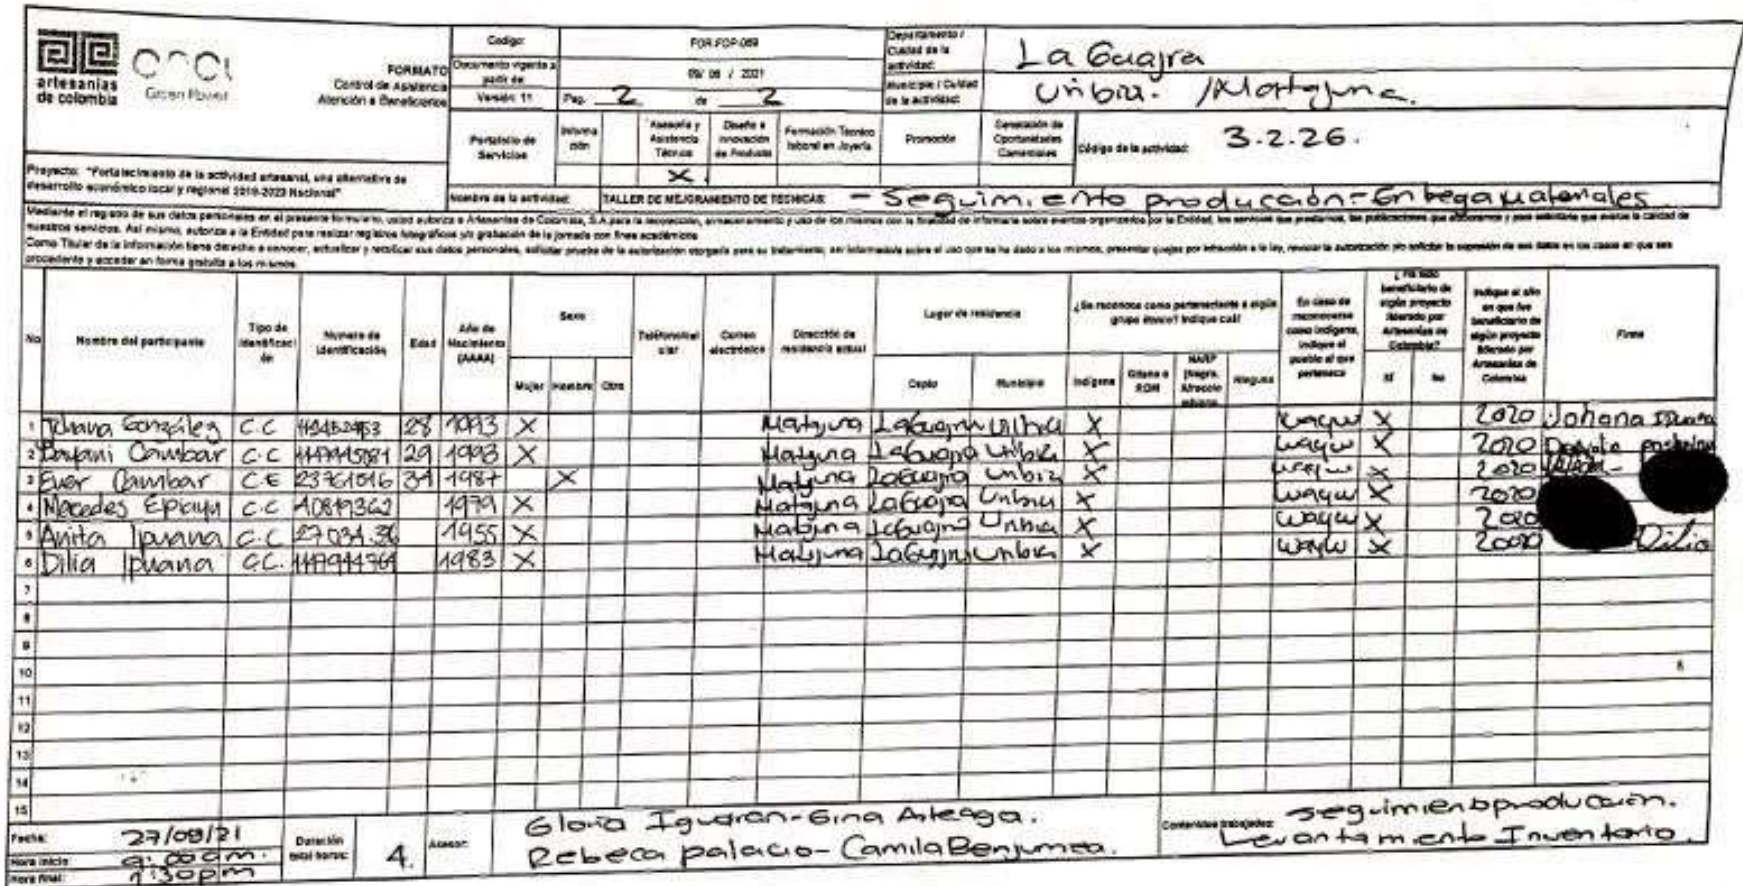 artesanías
de colombia
enel
Green Power
FORMATO
Control de Asistencia
Atención a Beneficiarios
Codigo:
FOR-FOP-069
Documento vigente a
partir de:
09/ 06 / 2021
Versión: 11
Pag. 2 de 2
Departamento /
Ciudad de la
actividad:
La Guajra
Municipio / Ciudad
de la actividad:
Uribia.
Portafolio de
Servicios
Informa
ción
Asesoría y
Asistencia
Técnica
X
Diseño e
Innovación
de Producto
Formación Técnico
laboral en Joyería
Promoción
Generación de
Oportunidades
Comerciales
Código de la actividad: 3.2.26.
Proyecto: "Fortalecimiento de la actividad artesanal, una alternativa de
desarrollo económico local y regional 2019-2023 Nacional"
Nombre de la actividad:
TALLER DE MEJORAMIENTO DE TECNICAS: - Seguimiento producción - Entrega Materiales
Mediante el registro de sus datos personales en el presente formulario, usted autoriza a Artesanías de Colombia, S.A. para la recolección, almacenamiento y uso de los mismos con la finalidad de informarle sobre eventos organizados por la Entidad, los servicios que prestamos, las publicaciones que elaboramos y para solicitarle que evalúe la calidad de
nuestros servicios. Así mismo, autorizo a la Entidad para realizar registros fotográficos y/o grabación de la jornada con fines académicos
Como Titular de la información tiene derecho a conocer, actualizar y rectificar sus datos personales, solicitar prueba de la autorización otorgada para su tratamiento, ser informado/a sobre el uso que se ha dado a los mismos, presentar quejas por infracción a la ley, revocar la autorización y/o solicitar la supresión de sus datos en los casos en que sea
procedente y acceder en forma gratuita a los mismos.
No
Nombre del participante
Tipo de
Identificaci
ón
Numero de
identificación
Edad
Año de
Nacimiento
(AAAA)
Sexo
Mujer Hombre Otro
Teléfono/cel
ular
Correo
electrónico
Dirección de
residencia actual
Lugar de residencia
Depto Municipio
¿Se reconoce como perteneciente a algún
grupo étnico? Indique cuál
Indígena
Gitano o
ROM
NARP
(Negro,
Afrocolo
Ninguno
En caso de
reconocerse
como indígena,
indique el
pueblo al que
pertenece
¿Ha sido
beneficiario de
algún proyecto
liderado por
Artesanías de
Colombia?
SI No
Indique el año
en que fue
beneficiario de
algún proyecto
liderado por
Artesanías de
Colombia
Firma
1 Johana González C.C 28 1993 X X X 2020 Johana
2 Cambar C.C 29 1993 X X X 2020
3 Ever Cambar C.E 23761016 34 1987 X X X 2020
4 Mercedes Epiayu C.C 40819362 1979 X X wayuu X 2020
5 Anita Ipuana C.C 1955 X X wayuu X 2020
6 Dilia Ipuana C.C. 1983 X X wayuu X Dilia
7
8
9
10
11
12
13
14
15
Fecha: 27/09/21
Hora inicio: 9:00am.
Hora final: 1:30pm
Duración
total horas: 4.
Asesor: Gloria Iguarán - Gina Arteaga.
Rebeca palacio - Camila Benjumea.
Contenidos trabajados: seguimiento producción.
Levantamiento Inventario.